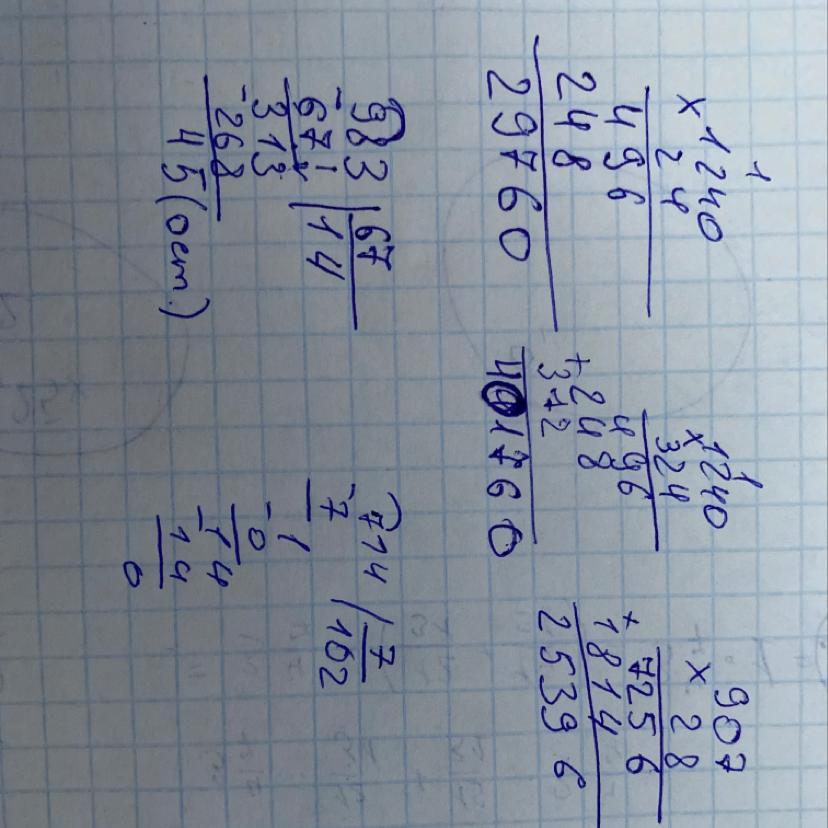 1
×1240
24
496
248
29760
1
×1240
324
496
+248
372
401760
907
×28
7256
+1814
25396
983 | 67
-67 | 14
313
-268
45 (ост.)
714 | 7
-7 | 102
1
-0
14
-14
0